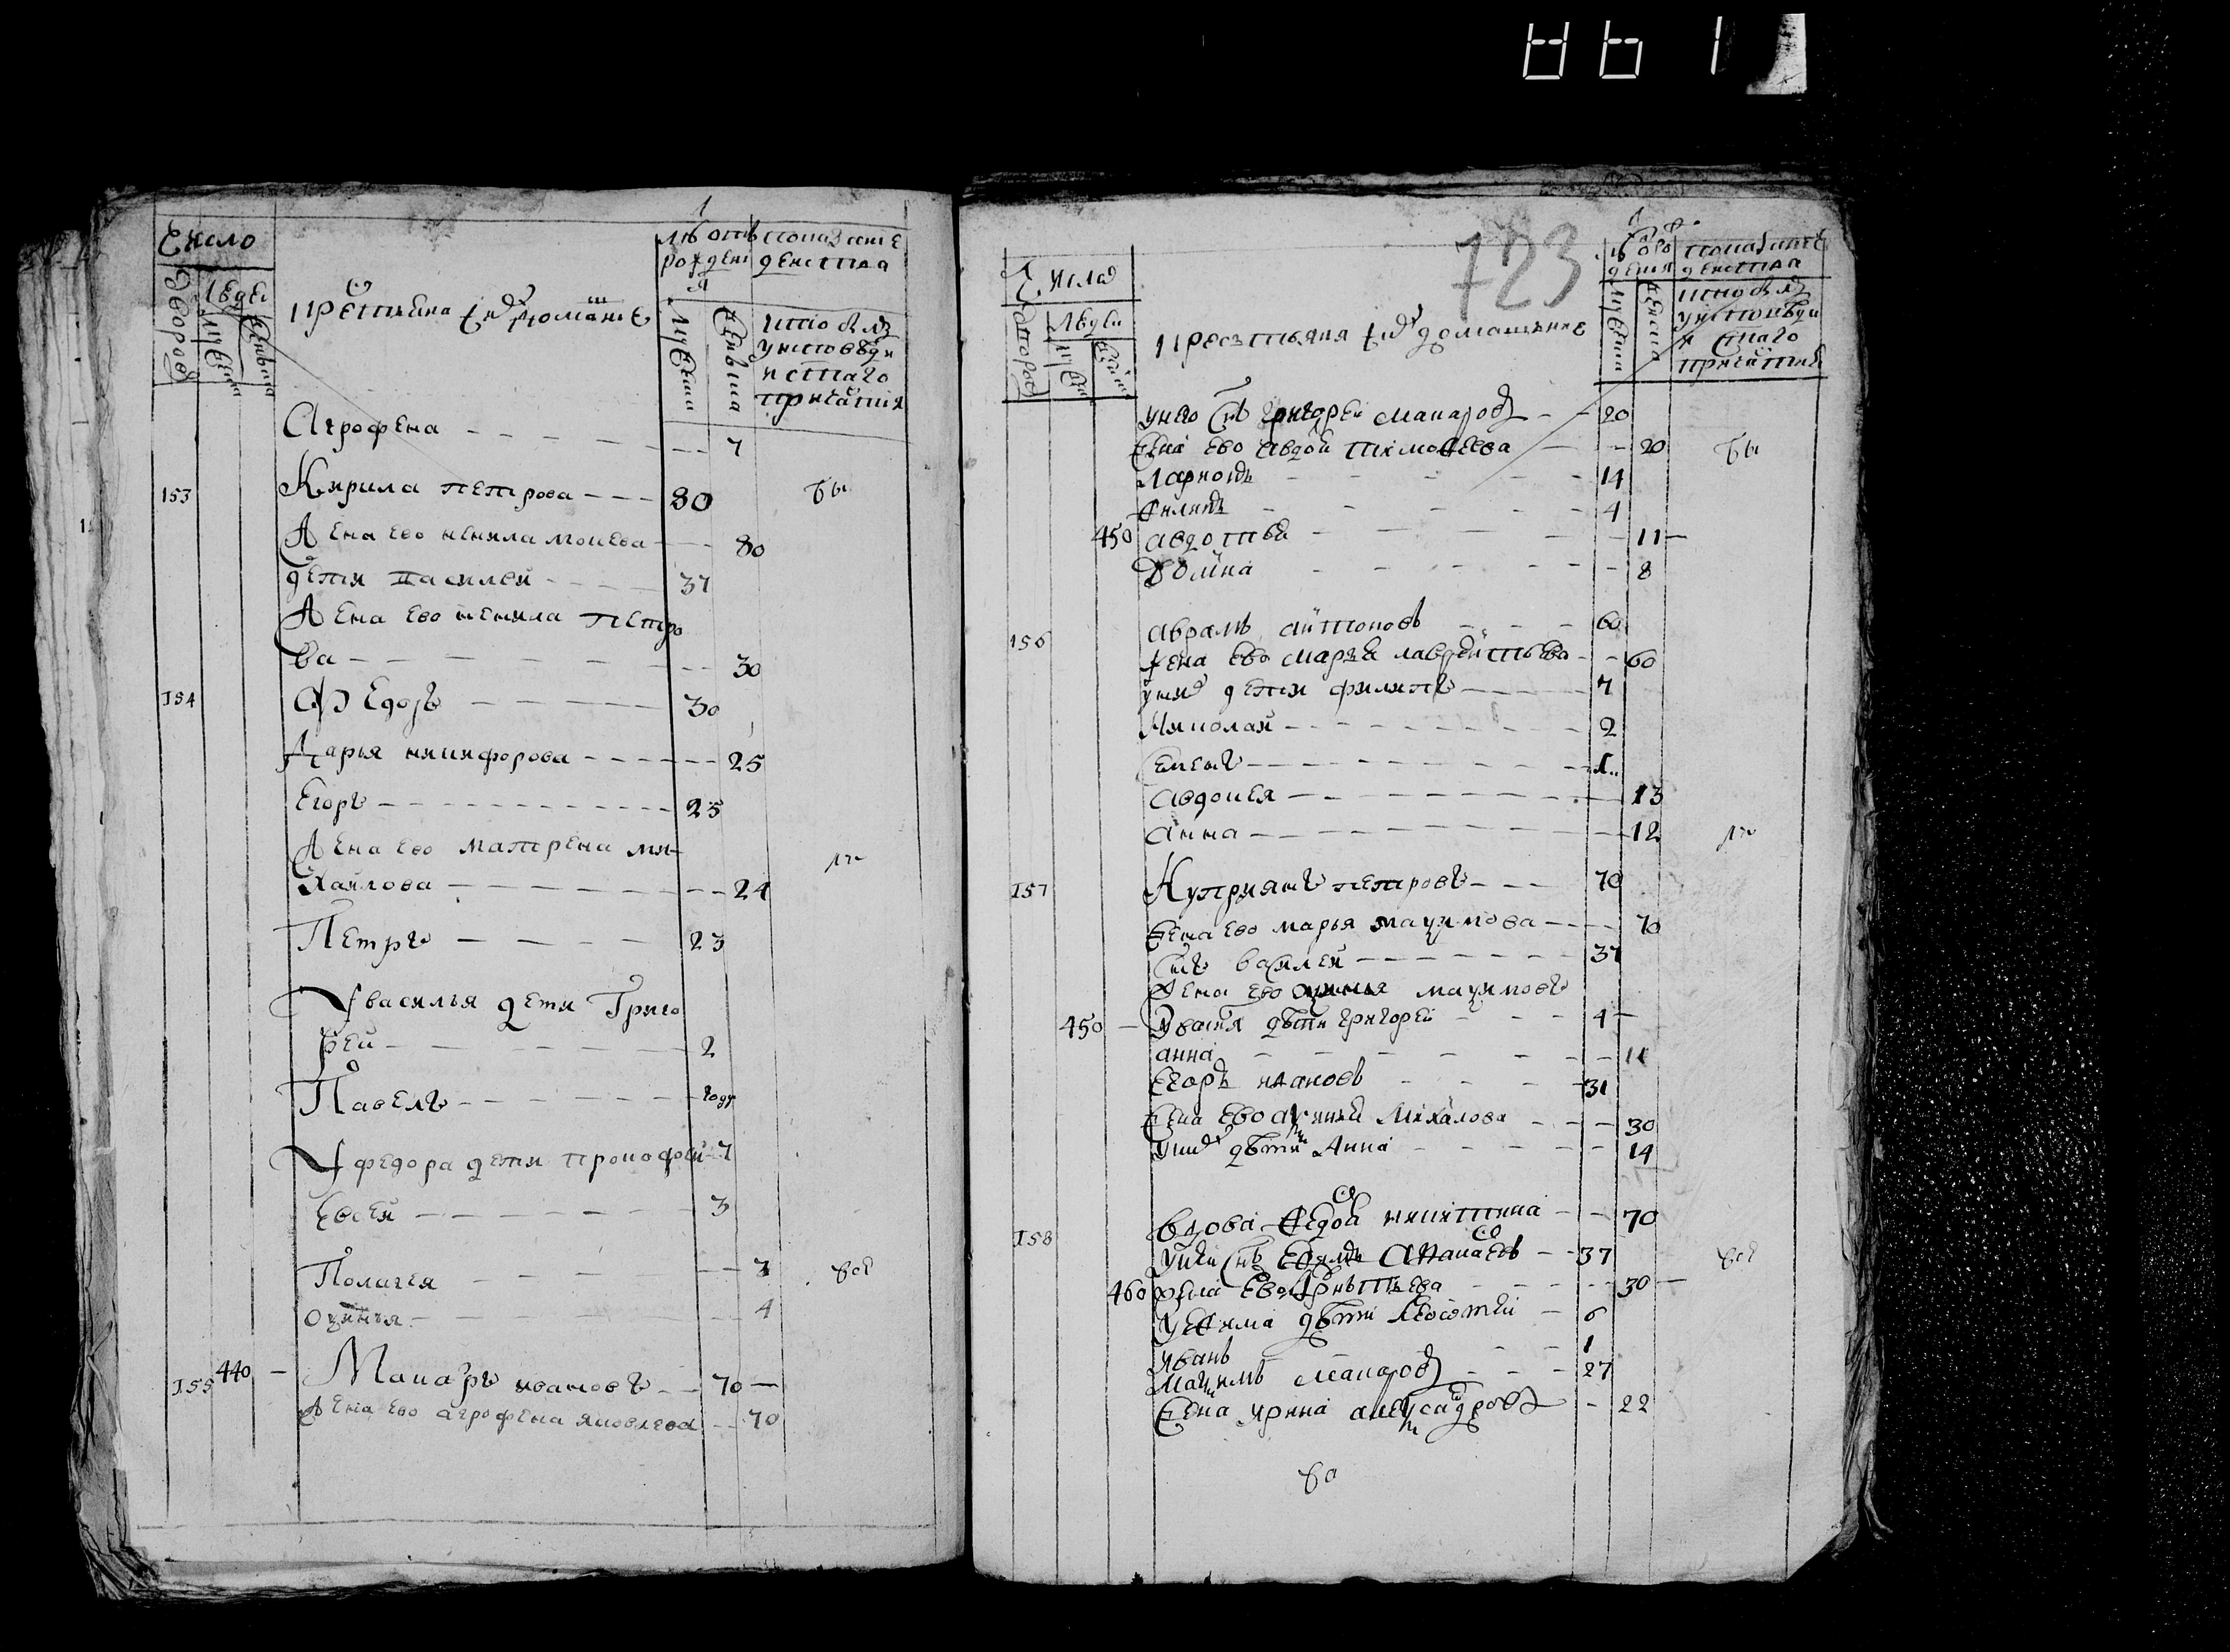 Число
дворовъ
людей
мужеска
женска
крестьяня и их домашние
лѣ от
рождени
я
мужеска
женска
показание
действа
кто был
у исповеди
и стаго
причастия
Агрофена - - - - 7
153 Кирила петрова - - - 80 бы
Жена ево ненила мокева - - 80
дети василей - - - - 37
Жена ево ненила петро
ва - - - - 30
154 Федоръ - - - - - 30
Дарья никифорова - - - - - - 25
Егоръ - - - - - - - - 25
Жена ево матрена ми-
хайлова - - - - - - - 24 ли
Петръ - - - - 23
У василья дети Григо
рей - - - - - - 2
Павелъ - - - - - - году
У федора дети прокофей - 7
Евсей - - - - - - - 3
Полагея - - - - 3 всѣ
оксинья - - - - - 4
155 440 - Макаръ ивановъ - - 70 -
Жена ево агрофена яковлева - - 70
723
Числ
дворов
людей
муже
женска
крестьяня и их домашние
лѣ о ро
дения
мужеска
женска
показание
действа
кто был
у исповѣди
и стаго
причастия
у него снъ григорей макаров - - 20
жена ево авдоти тимофеева - - 20 бы
Ларионъ - - - - 14
Филипъ - - - - 4
450 авдотья - - - - 11 -
- - - - 8
156 аврамъ антоновъ - - - 60
жена ево марѳа лаврентьева - - 60
у них дети филипъ - - - - 7
Николай - - - - - - - 2
Семенъ - - - - - - - -
авдокея - - - - - - - 13
анна - - - - - - - - 12 ли
157 Куприянъ петровъ - - - 70
жена ево марья максимова - - - - 70
снъ василей - - - - - - - 37
жена ево аксинья максимовъ
450 - у васия дѣти григорей - - - 4 -
анна - - - - - - 11
Егоръ ивановъ - - - - 31
жена ево аксинья михалова - - - 30
у них дѣти Анна - - - - 14
158 вдова Федос никитина - - 70
у неи снъ Ефимъ - - 37 всѣ
460 жена ево - - - - - 30 -
у Ефима дѣти - 6
иванъ - - 1
максимъ макаров - - - 27
жена ирина александрова - 22
ва